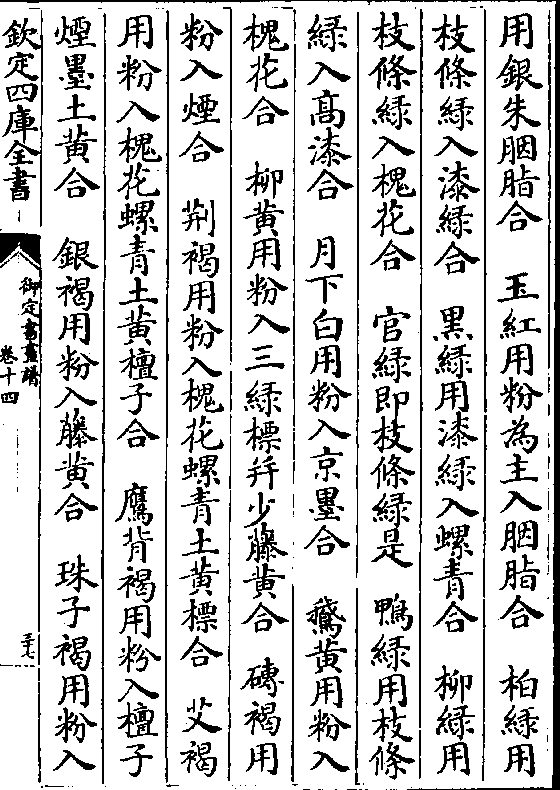 用銀朱胭脂合　玉紅用粉為主入胭脂合　柏綠用
枝條綠入漆綠合　黑綠用漆綠入螺青合　柳綠用
枝條綠入槐花合　官綠即枝條綠是　鴨綠用枝條
綠入高漆合　月下白用粉入京墨合　鵞黃用粉入
槐花合　柳黃用粉入三綠標幷少籐黃合　磚褐用
粉入煙合　荆褐用粉入槐花螺青土黃標合　艾褐
用粉入槐花螺青土黃檀子合　鷹背褐用粉入檀子
煙墨土黃合　銀褐用粉入籐黃合　珠子褐用粉入
欽定四庫全書
御定書畫譜
卷十四
三七